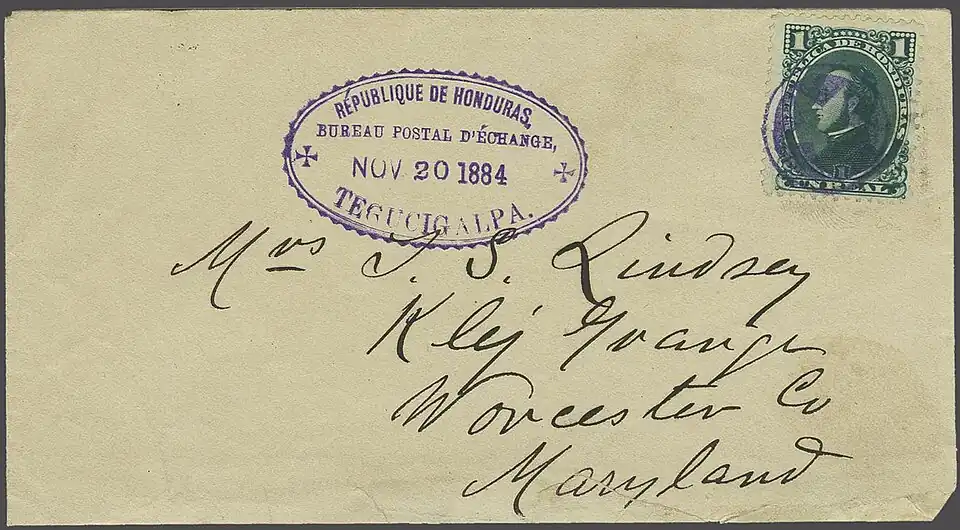 RÉPUBLIQUE DE HONDURAS,
BUREAU POSTAL D'ÉCHANGE,
NOV 20 1884
TEGUCIGALPA.
1 1
REPÚBLICA DE HONDURAS
UN REAL
Mrs J. S. Lindsey
Klej Grange
Worcester Co
Maryland